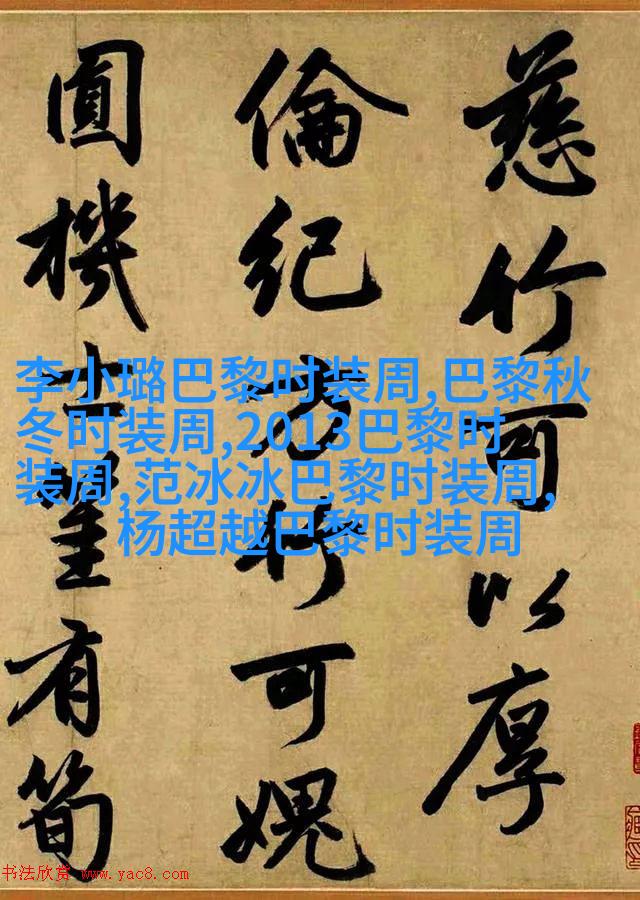 慈竹可以厚
倫紀方竹可愧
圓機士有筍
李小璐巴黎时装周,巴黎秋
冬时装周,2013巴黎时
装周,范冰冰巴黎时装周,
杨超越巴黎时装周
书法欣赏 www.yac8.com